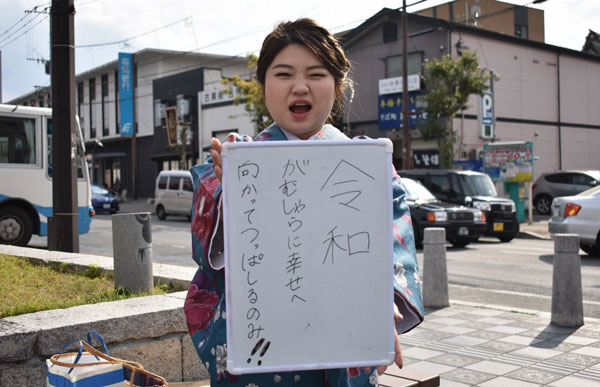 令和
がむしゃらに幸せへ
向かってつっぱしるのみ!!
P